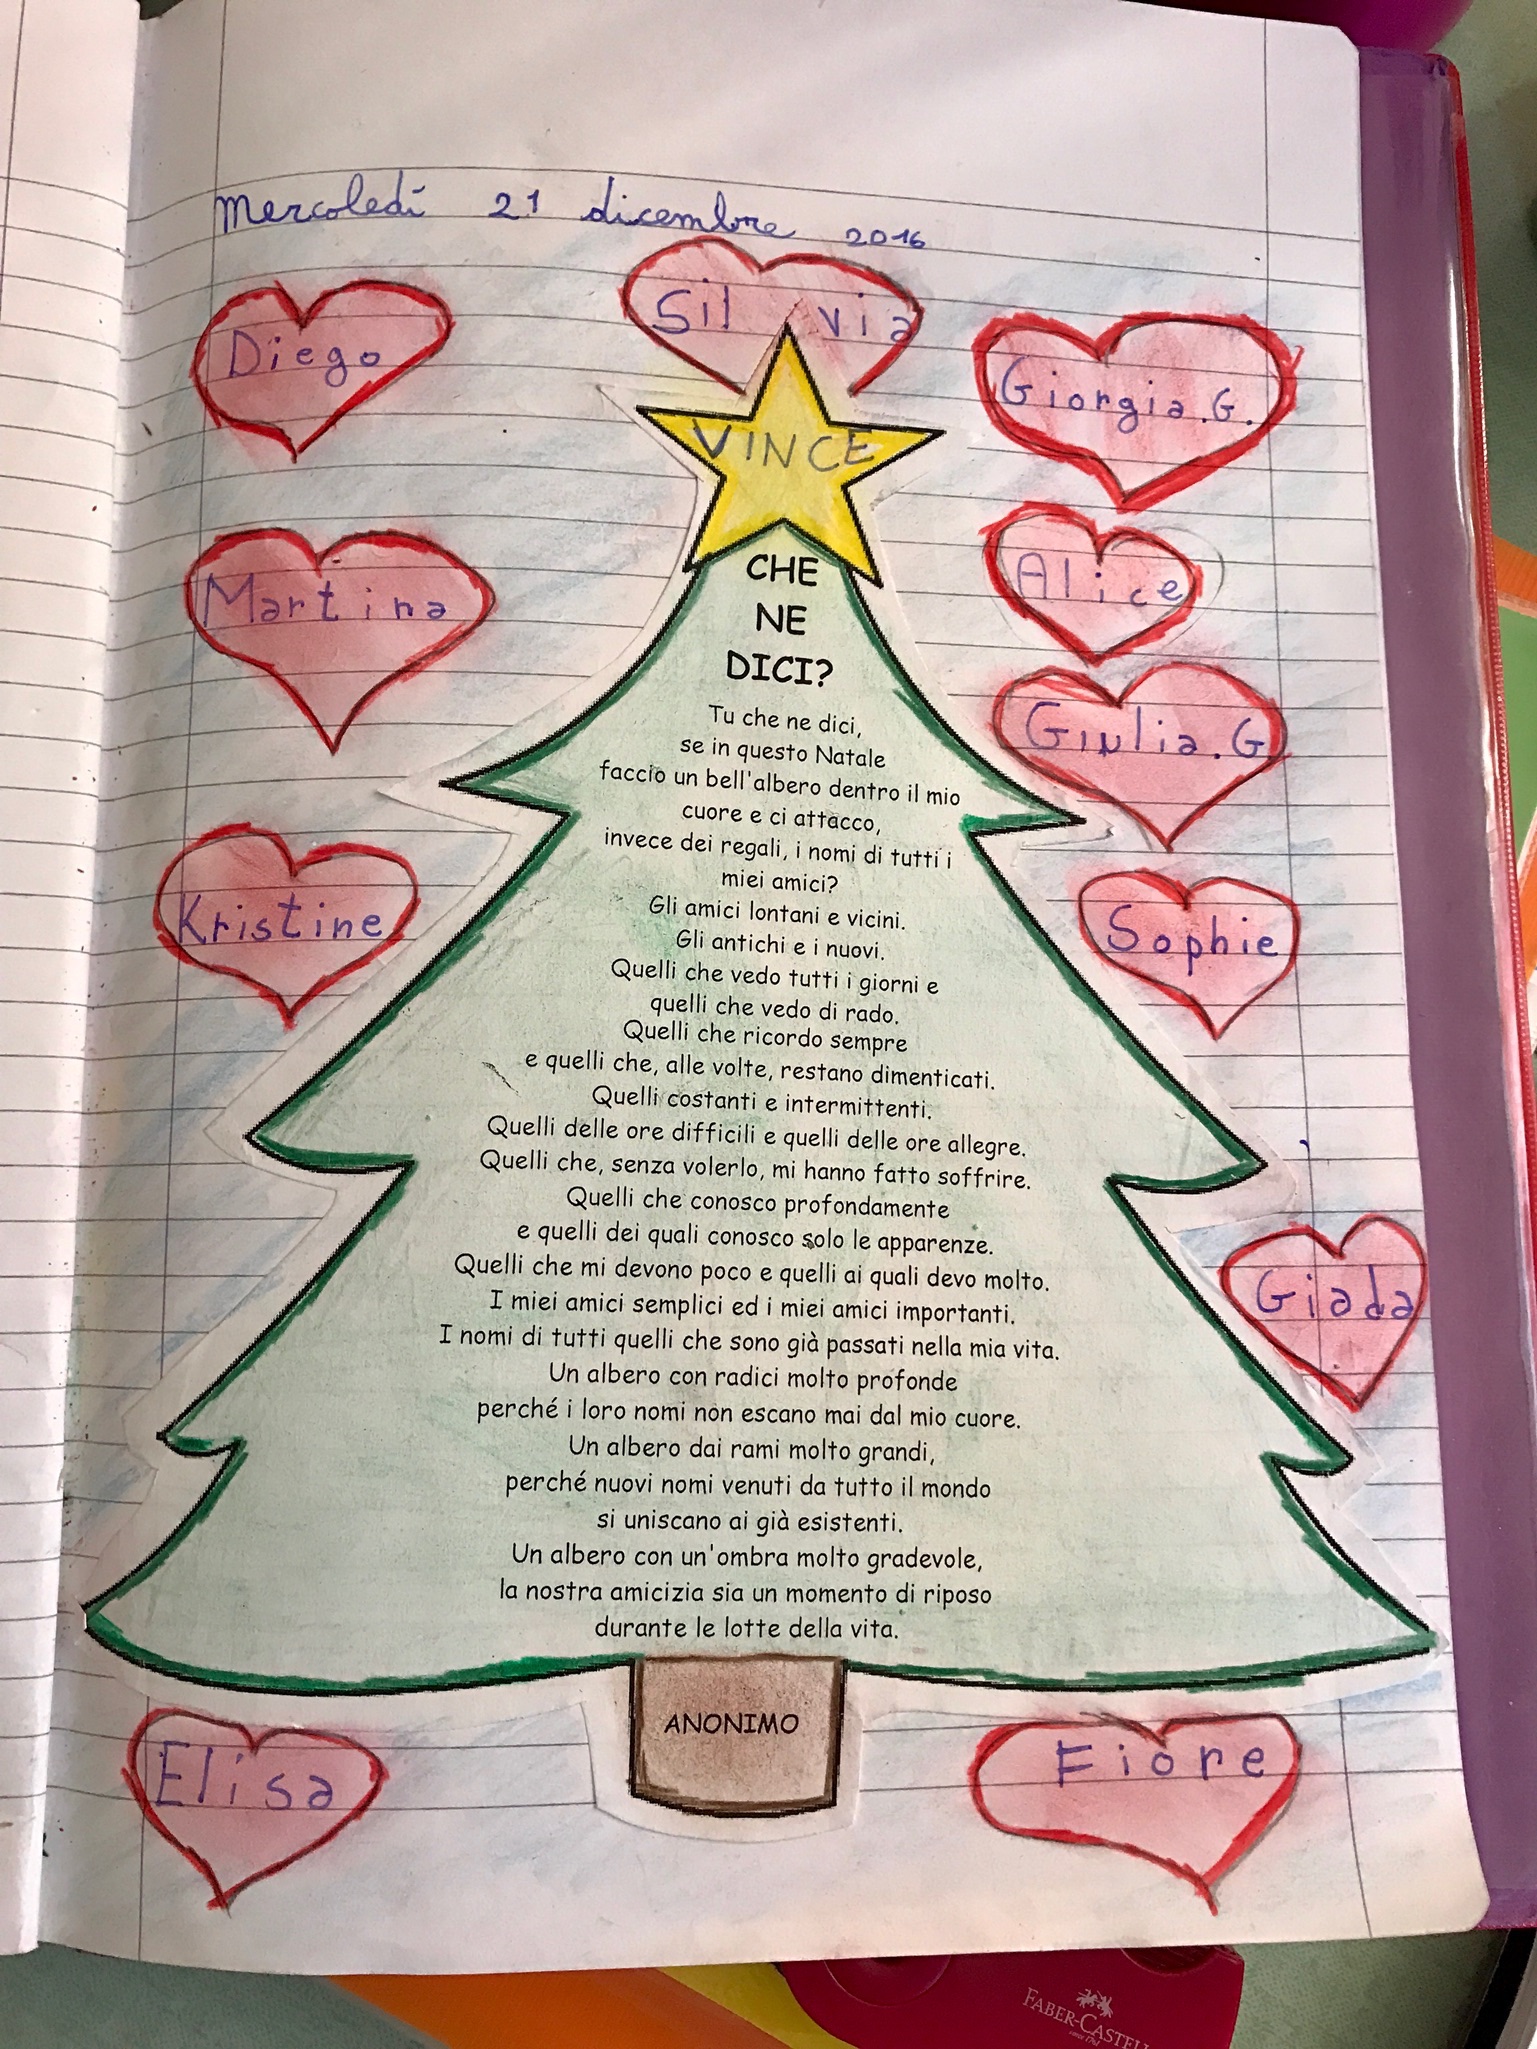 Mercoledì 21 dicembre 2016
Diego
Silvia
Giorgia.G.
VINCE
Martina
Alice
Giulia.G
Kristine
Sophie
Giada
CHE
NE
DICI?
Tu che ne dici,
se in questo Natale
faccio un bell'albero dentro il mio
cuore e ci attacco,
invece dei regali, i nomi di tutti i
miei amici?
Gli amici lontani e vicini.
Gli antichi e i nuovi.
Quelli che vedo tutti i giorni e
quelli che vedo di rado.
Quelli che ricordo sempre
e quelli che, alle volte, restano dimenticati.
Quelli costanti e intermittenti.
Quelli delle ore difficili e quelli delle ore allegre.
Quelli che, senza volerlo, mi hanno fatto soffrire.
Quelli che conosco profondamente
e quelli dei quali conosco solo le apparenze.
Quelli che mi devono poco e quelli ai quali devo molto.
I miei amici semplici ed i miei amici importanti.
I nomi di tutti quelli che sono già passati nella mia vita.
Un albero con radici molto profonde
perché i loro nomi non escano mai dal mio cuore.
Un albero dai rami molto grandi,
perché nuovi nomi venuti da tutto il mondo
si uniscano ai già esistenti.
Un albero con un'ombra molto gradevole,
la nostra amicizia sia un momento di riposo
durante le lotte della vita.
ANONIMO
Elisa
Fiore
FABER-CASTELL
since 1761